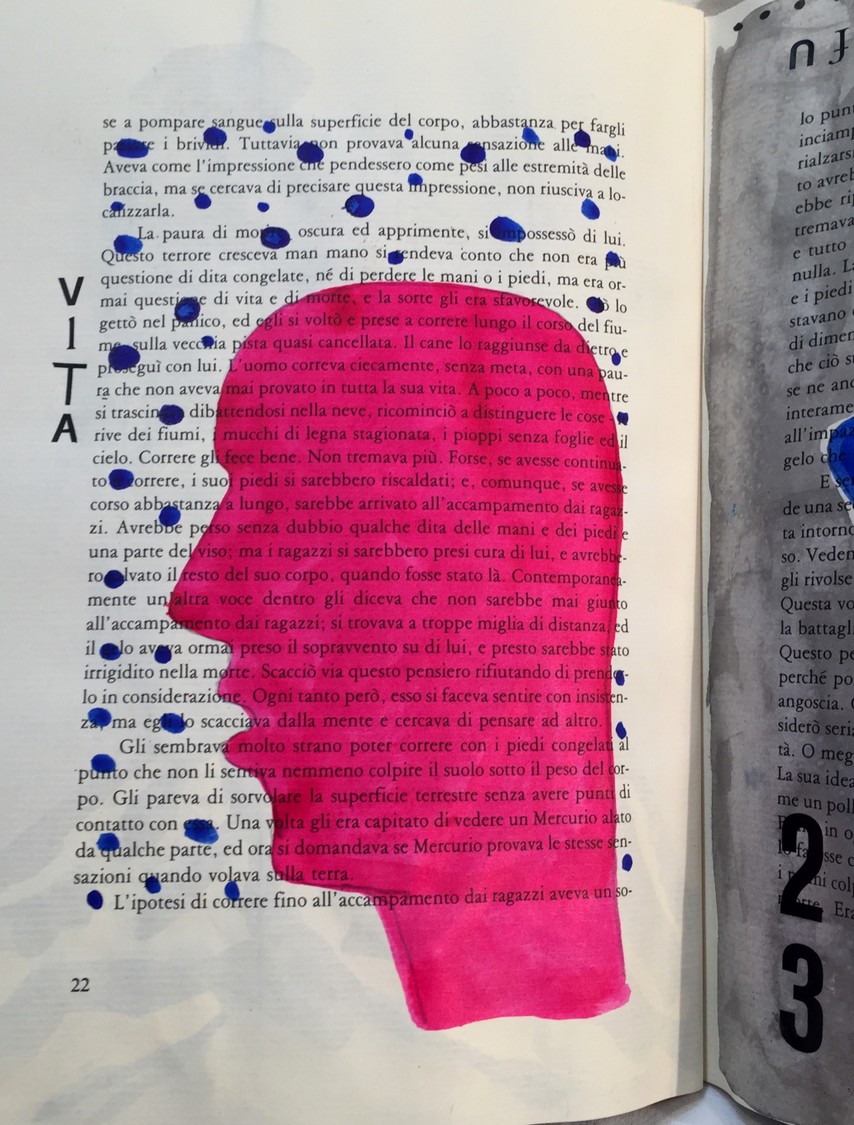 se a pompare sangue sulla superficie del corpo, abbastanza per fargli
passare i brividi. Tuttavia non provava alcuna sensazione alle mani.
Aveva come l'impressione che pendessero come pesi alle estremità delle
braccia, ma se cercava di precisare questa impressione, non riusciva a lo-
calizzarla.
La paura di morire, oscura ed apprimente, si impossessò di lui.
Questo terrore cresceva man mano si rendeva conto che non era più
questione di dita congelate, né di perdere le mani o i piedi, ma era or-
mai questione di vita e di morte, e la sorte gli era sfavorevole. Ciò lo
gettò nel panico, ed egli si voltò e prese a correre lungo il corso del fiu-
me sulla vecchia pista quasi cancellata. Il cane lo raggiunse da dietro e
proseguì con lui. L'uomo correva ciecamente, senza meta, con una pau-
ra che non aveva mai provato in tutta la sua vita. A poco a poco, mentre
si trascinava dibattendosi nella neve, ricominciò a distinguere le cose -
rive dei fiumi, i mucchi di legna stagionata, i pioppi senza foglie ed il
cielo. Correre gli fece bene. Non tremava più. Forse, se avesse continua-
to a correre, i suoi piedi si sarebbero riscaldati; e, comunque, se avesse
corso abbastanza a lungo, sarebbe arrivato all'accampamento dai ragaz-
zi. Avrebbe perso senza dubbio qualche dita delle mani e dei piedi e
una parte del viso; ma i ragazzi si sarebbero presi cura di lui, e avrebbe-
ro salvato il resto del suo corpo, quando fosse stato là. Contemporanea-
mente un'altra voce dentro gli diceva che non sarebbe mai giunto
all'accampamento dai ragazzi; si trovava a troppe miglia di distanza, ed
il gelo aveva ormai preso il sopravvento su di lui, e presto sarebbe stato
irrigidito nella morte. Scacciò via questo pensiero rifiutando di prender-
lo in considerazione. Ogni tanto però, esso si faceva sentire con insisten-
za, ma egli lo scacciava dalla mente e cercava di pensare ad altro.
Gli sembrava molto strano poter correre con i piedi congelati al
punto che non li sentiva nemmeno colpire il suolo sotto il peso del cor-
po. Gli pareva di sorvolare la superficie terrestre senza avere punti di
contatto con essa. Una volta gli era capitato di vedere un Mercurio alato
da qualche parte, ed ora si domandava se Mercurio provava le stesse sen-
sazioni quando volava sulla terra.
L'ipotesi di correre fino all'accampamento dai ragazzi aveva un so-
VITA
22
lo pun
inciam
rialzars
to avre
ebbe ri
tremava
e tutto
nulla. L
e i piedi
stavano
di dimen
che ciò s
se ne and
interame
all'impa
gelo che
E se
de una se
ta intorno
so. Veden
gli rivolse
Questa vo
la battagli
Questo pe
perché po
angoscia.
siderò seri
tà. O meg
La sua idea
me un poll
in o
sse c
i colp
Era
23